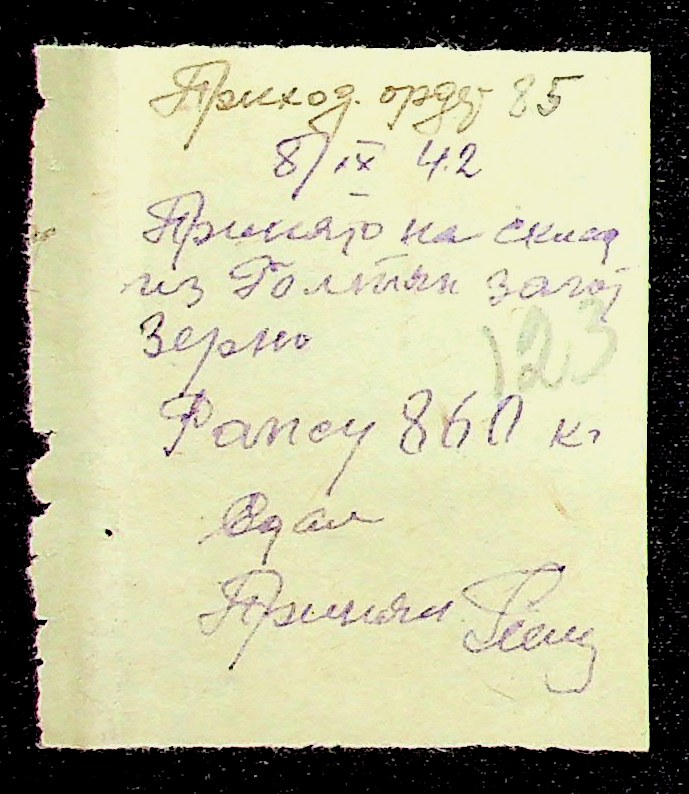 Приход. ордер 85
8/IX 42
Принято на склад
из Голтян загот
Зерно
123
Рапсу 860 кг
Сдал
Принял